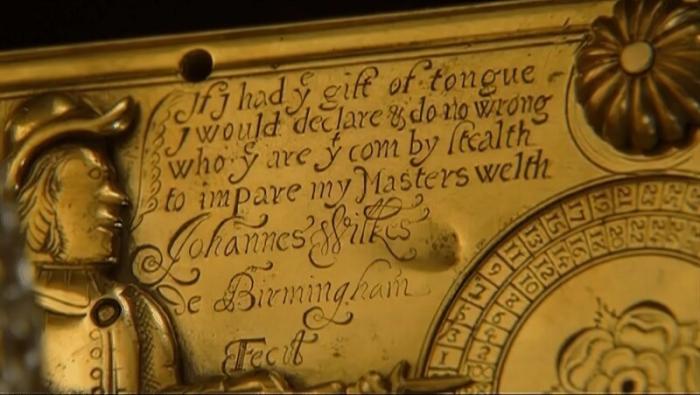 If J had yͤ gift of tongue
J would declare & do no wrong
who yͤ are yͭ com by stealth
to impare my Masters welth
Johannes Wilkes
de Birmingham
Fecit